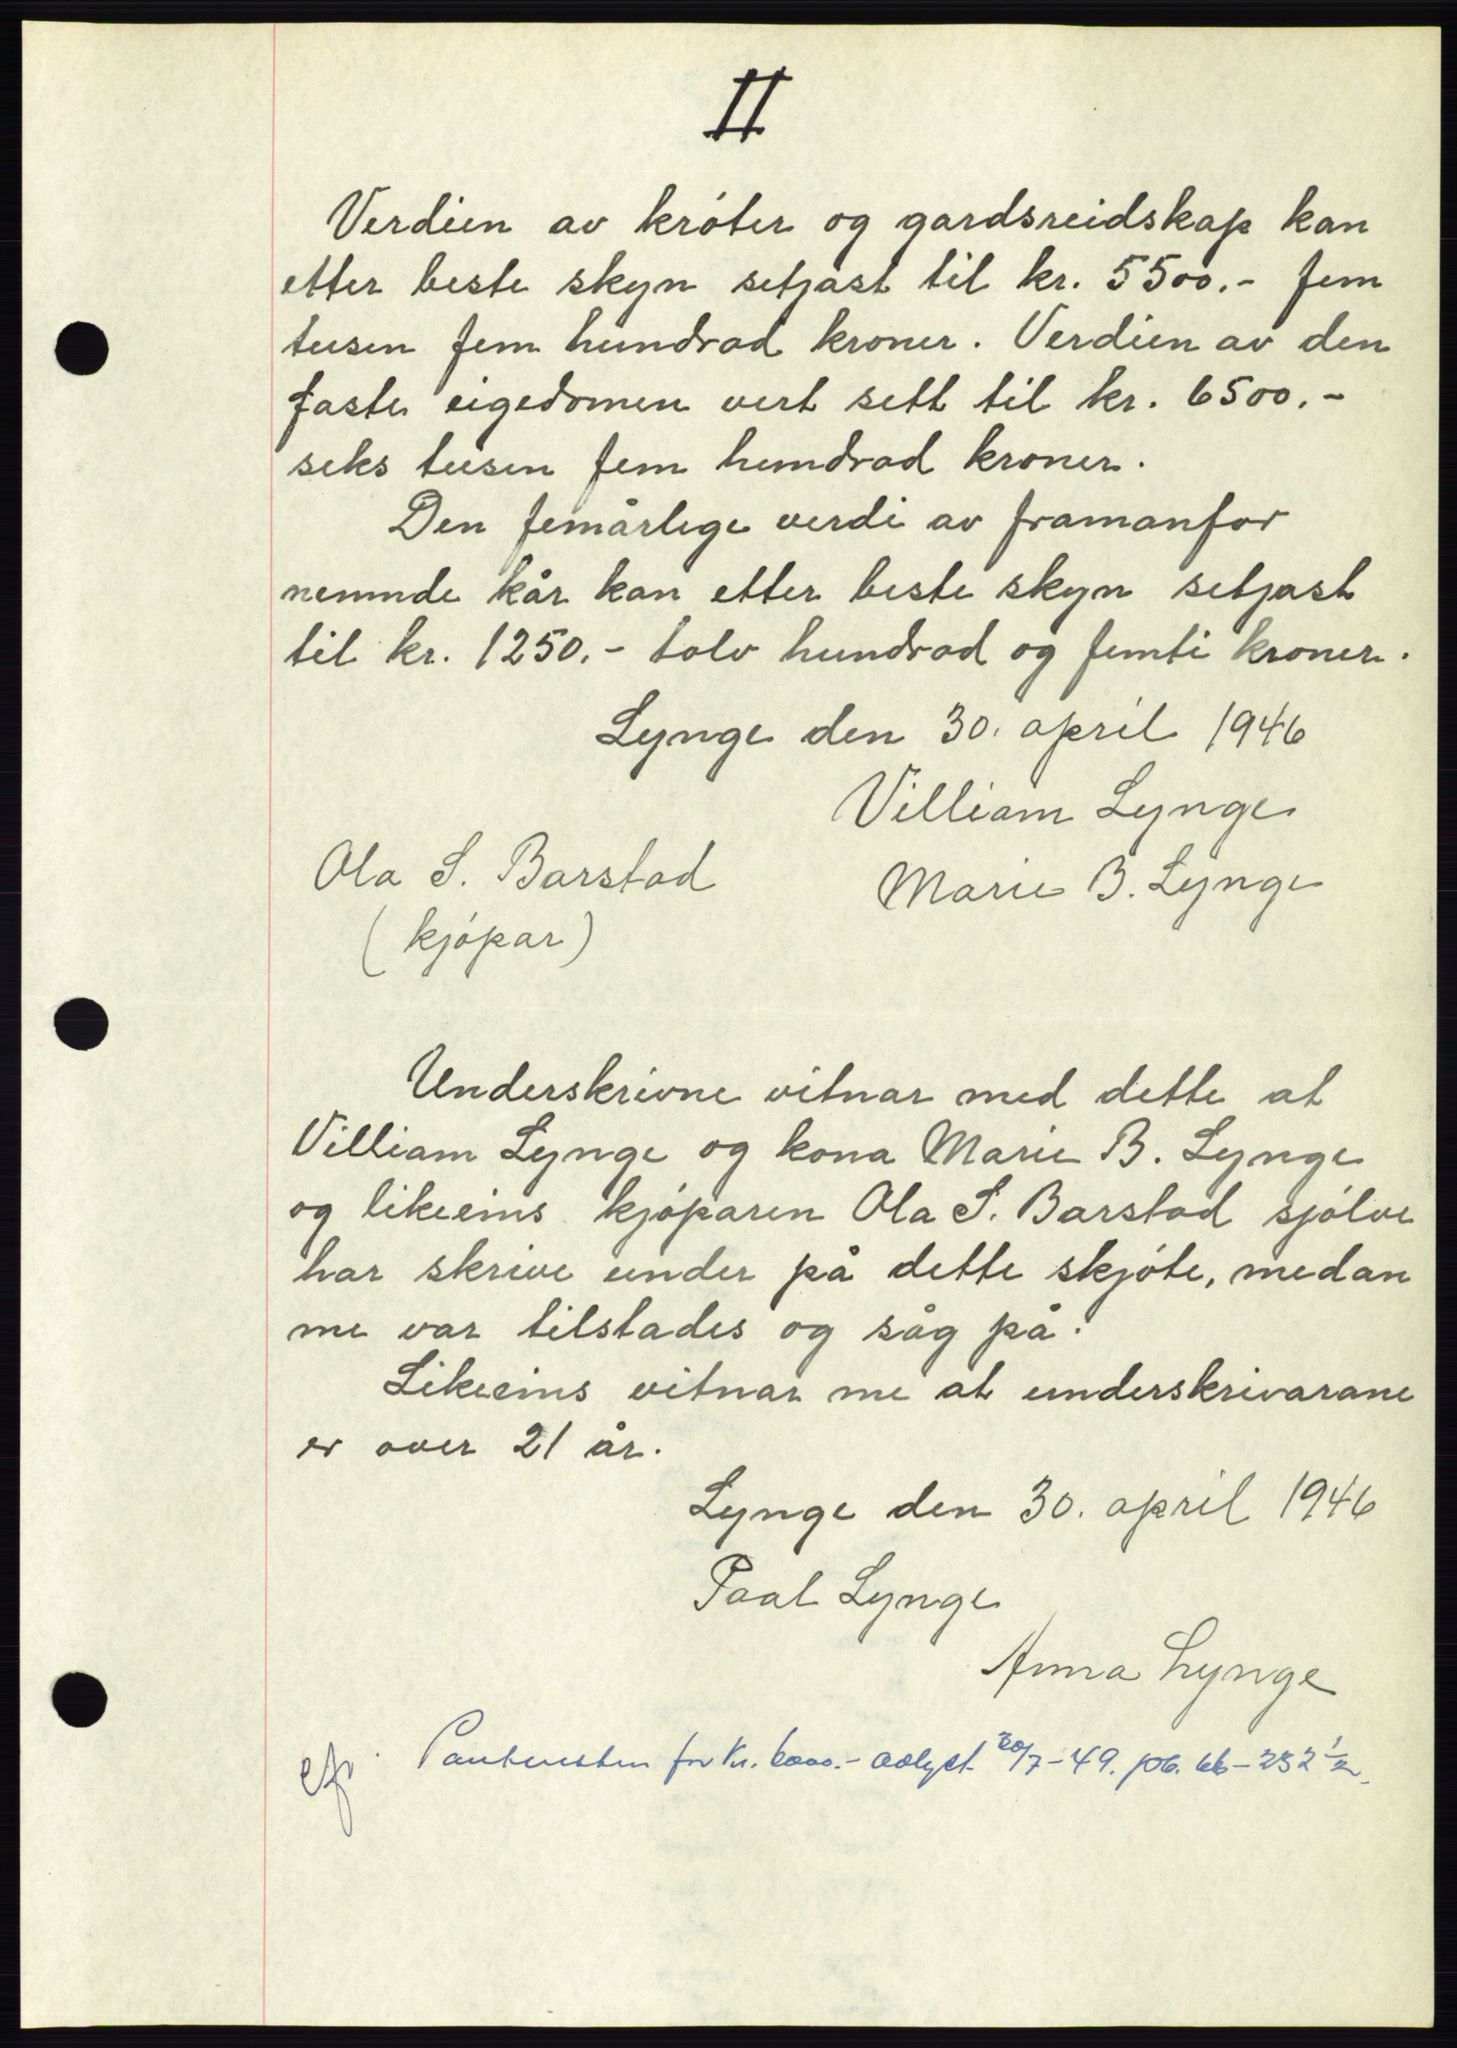 II
Verdien av króter og gardsreidskap kan
etter beste skyn setjast til kr. 5500.- fem
tusen fem hundrad kroner. Verdien av den
faste eigedomen vert sett til kr. 6500.-
seks tusen fem hundrad kroner.
Den femårlege verdi av framanfor
nemnde kår kan etter beste skyn setjast
til kr. 1250.- tolv hundrad og femti kroner.
Lynge den 30. april 1946
Villiam Lynge
Ola S. Barstad
Marie B. Lynge
(kjópar)
Underskrivne vitnar med dette at
Villiam Lynge og kona Marie B. Lynge
og likeeins kjóparen Ola S. Barstad sjólve
har skrive under på dette skjóte, medan
me var tilstades og såg på.
Likeeins vitnar me at underskrivarane
er over 21 år.
Lynge den 30. april 1946
Paal Lynge
Anna Lynge
for kr. 6000.- avlyst 20/7-49. pb. 66-232 1/2.